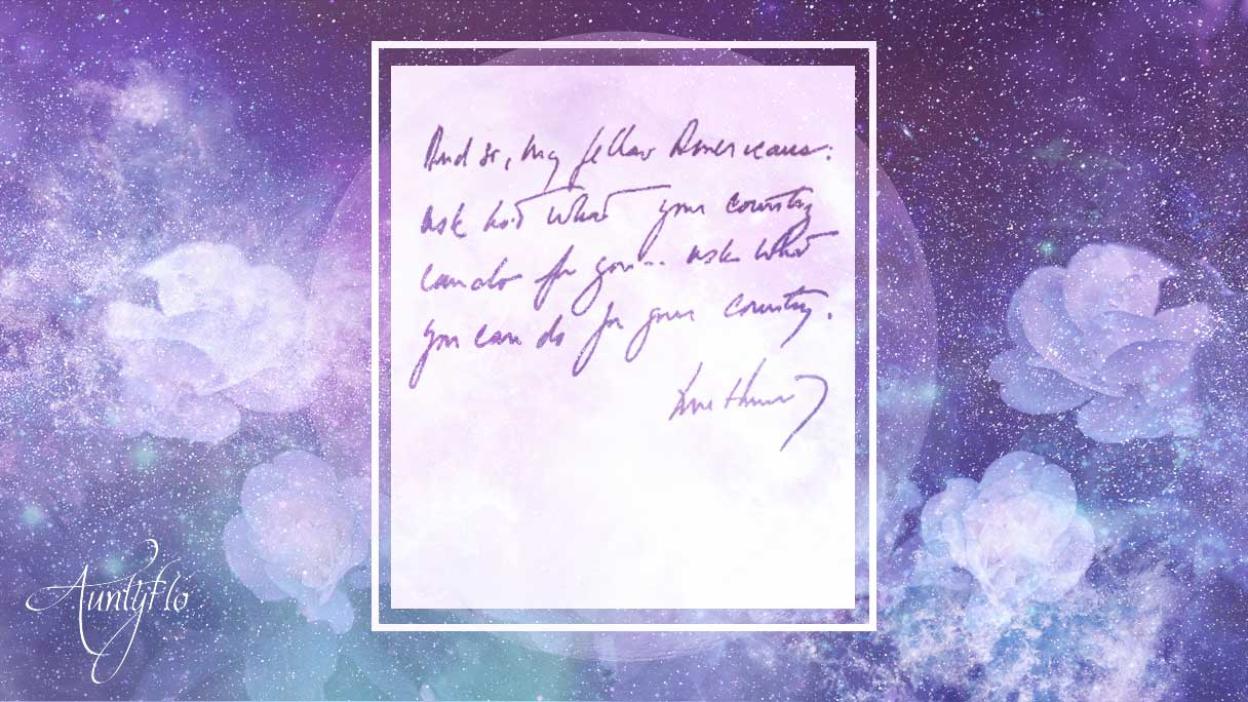 And so, my fellow Americans:
ask not what your country
can do for you-- ask what
you can do for your country.
AuntyFlo